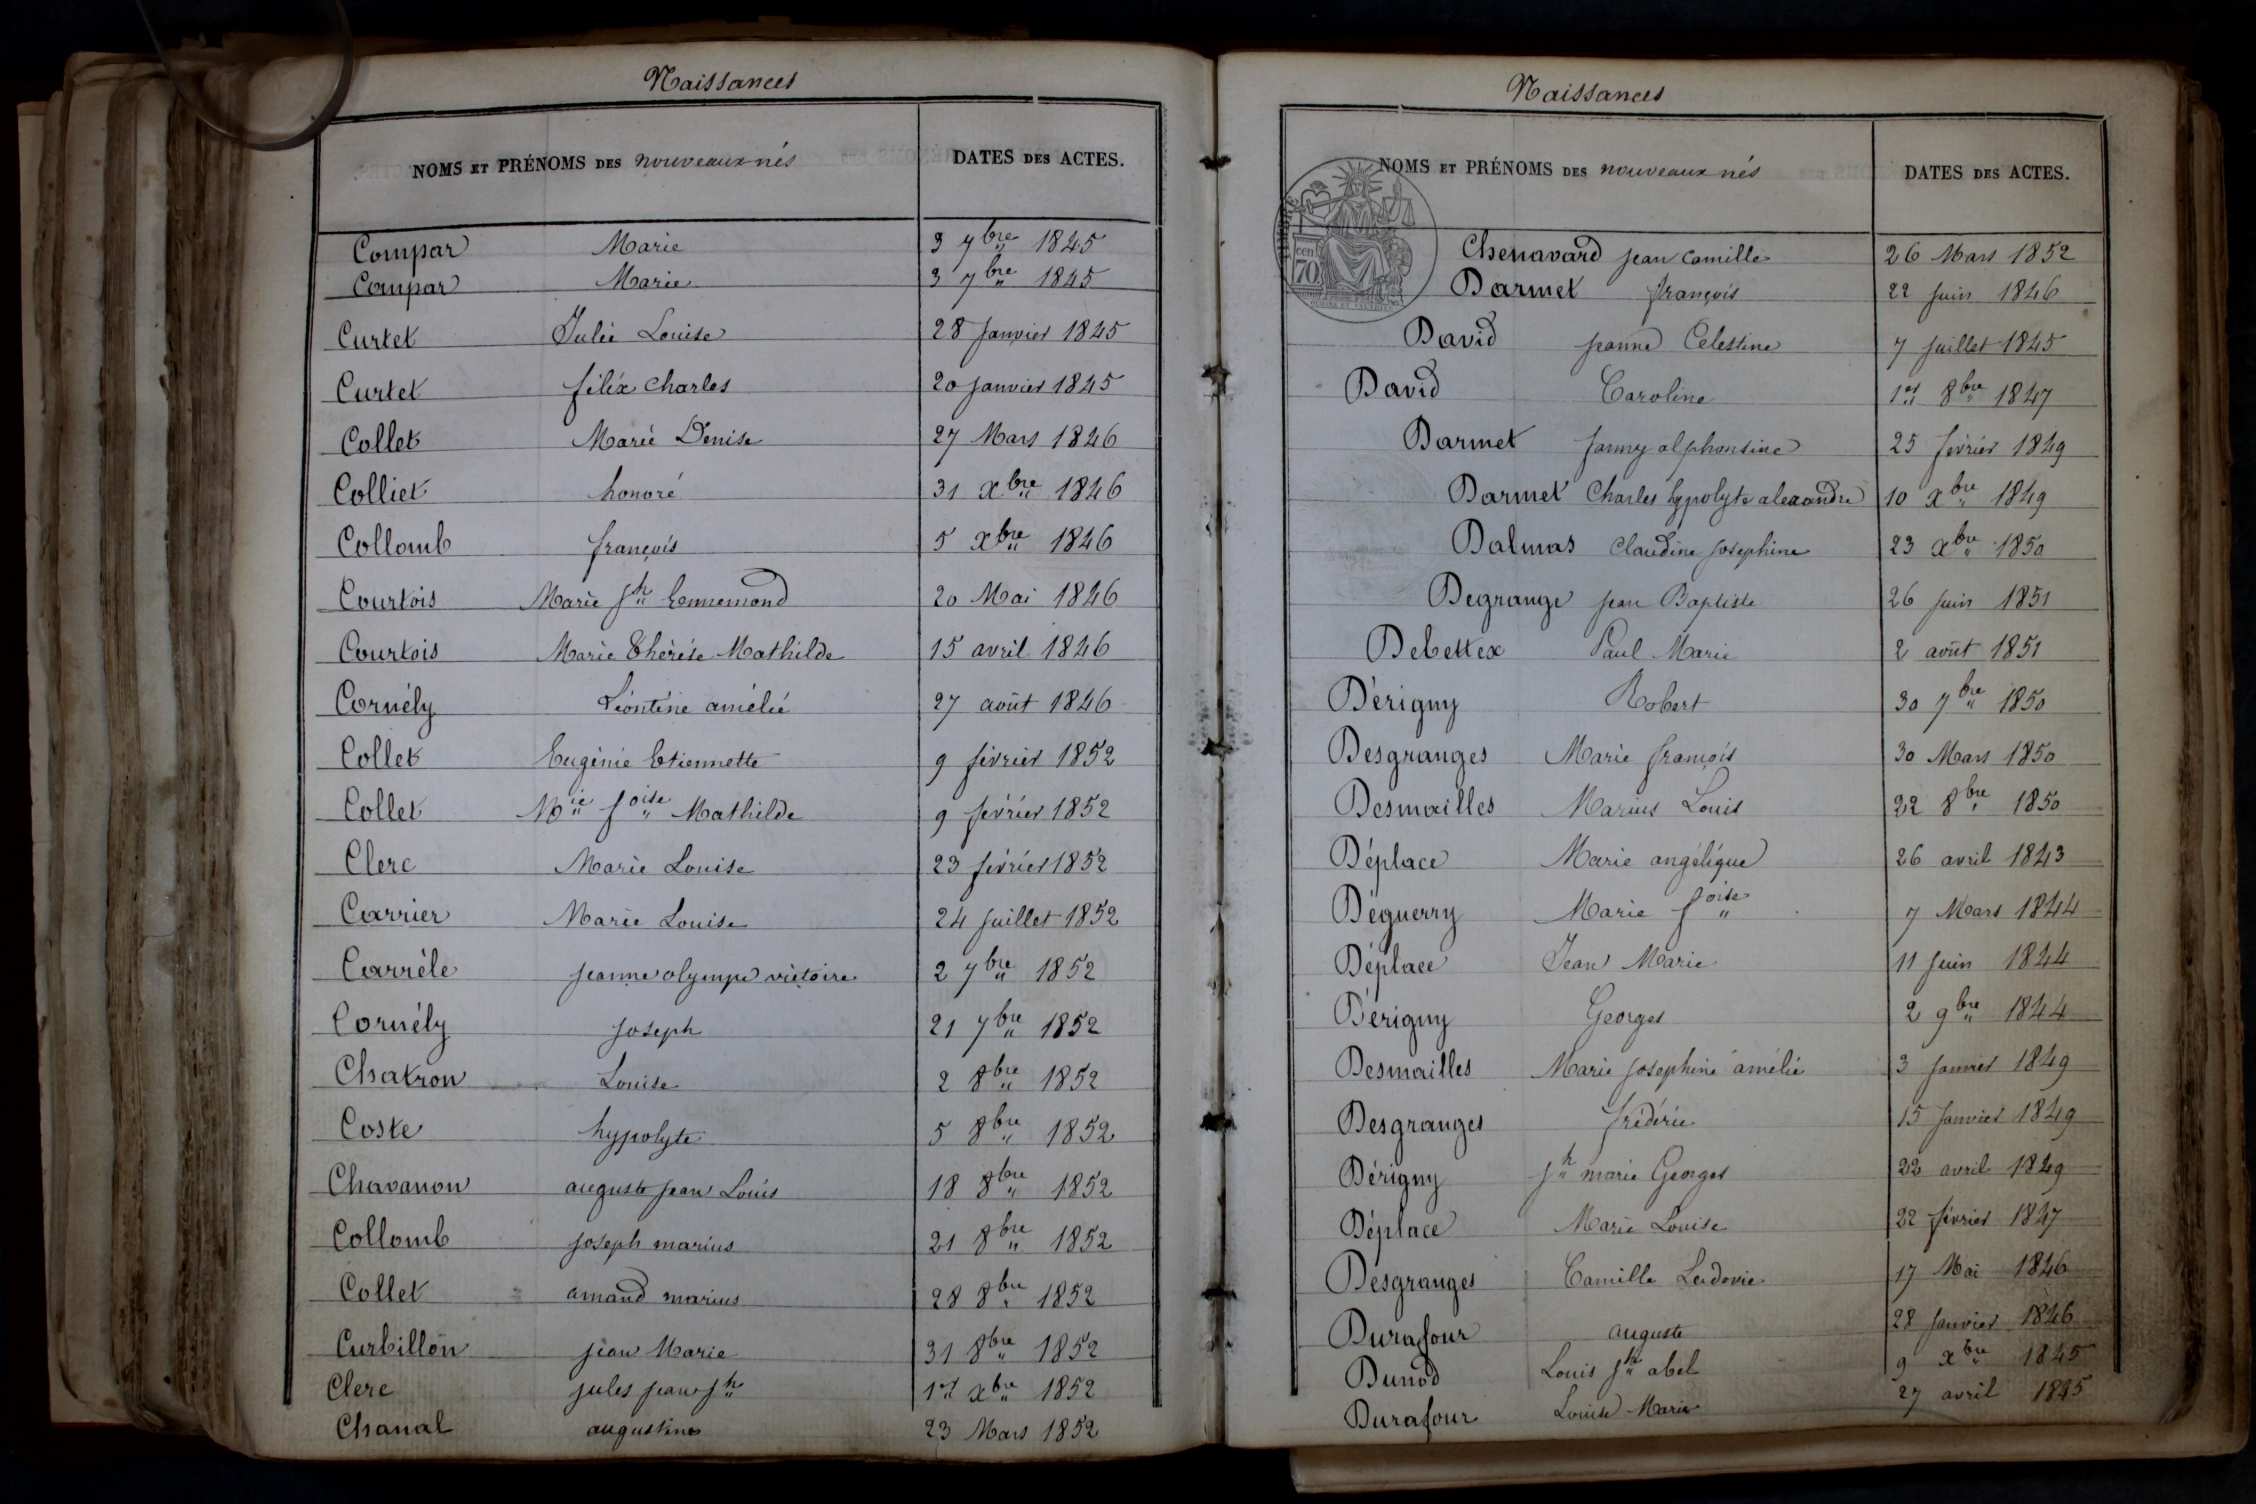 Naissances
NOMS ET PRÉNOMS DES nouveaux nés DATES DES ACTES.
Compar Marie 3 7bre 1845
Compar Marie 3 7bre 1845
Curtet Julie Louise 28 Janvier 1845
Curtet félix Charles 20 Janvier 1845
Collet Marie Denise 27 Mars 1846
Colliet honoré 31 Xbre 1846
Collomb françois 5 Xbre 1846
Courtois Marie Jh Ennemond 20 Mai 1846
Courtois Marie Thérèse Mathilde 15 avril 1846
Cornély Léontine amélie 27 août 1846
Collet Eugénie Etiennette 9 février 1852
Collet Mie foise Mathilde 9 février 1852
Clerc Marie Louise 23 février 1852
Carrier Marie Louise 24 Juillet 1852
Carrèle Jeanne olympe victoire 2 7bre 1852
Cornély Joseph 21 7bre 1852
Chatron Louise 2 8bre 1852
Coste hypolyte 5 8bre 1852
Chavanon auguste Jean Louis 18 8bre 1852
Collomb Joseph marius 21 8bre 1852
Collet amand marius 28 8bre 1852
Curbillon jean Marie 31 8bre 1852
Clerc jules jean Jh 1er Xbre 1852
Chanal augustine 23 Mars 1852
Naissances
NOMS ET PRÉNOMS DES nouveaux nés DATES DES ACTES.
70
Chenavard Jean Camille 26 Mars 1852
Darmet françois 22 Juin 1846
David Jeanne Celestine 7 Juillet 1845
David Caroline 1er 8bre 1847
Darmet fanny alphonsine 25 février 1849
Darmet Charles hypolyte alexandre 10 Xbre 1849
Dalmas Claudine Josephine 23 Xbre 1850
Degrange Jean Baptiste 26 Juin 1851
Debettex Paul Marie 2 août 1851
Dérigny Robert 30 7bre 1850
Desgranges Marie françois 30 Mars 1850
Desmailles Marius Louis 22 8bre 1850
Déplace Marie angélique 26 avril 1843
Déguerry Marie foise 7 Mars 1844
Déplace Jean Marie 11 Juin 1844
Dérigny Georges 2 9bre 1844
Desmailles Marie Josephine amélie 3 Janvier 1849
Desgranges frédéric 15 Janvier 1849
Dérigny Jh marie Georges 22 avril 1849
Déplace Marie Louise 22 février 1847
Desgranges Camille Ludovic 17 Mai 1846
Durafour auguste 28 Janvier 1846
Dunod Louis Jh abel 9 Xbre 1845
Durafour Louise Marie 27 avril 1845